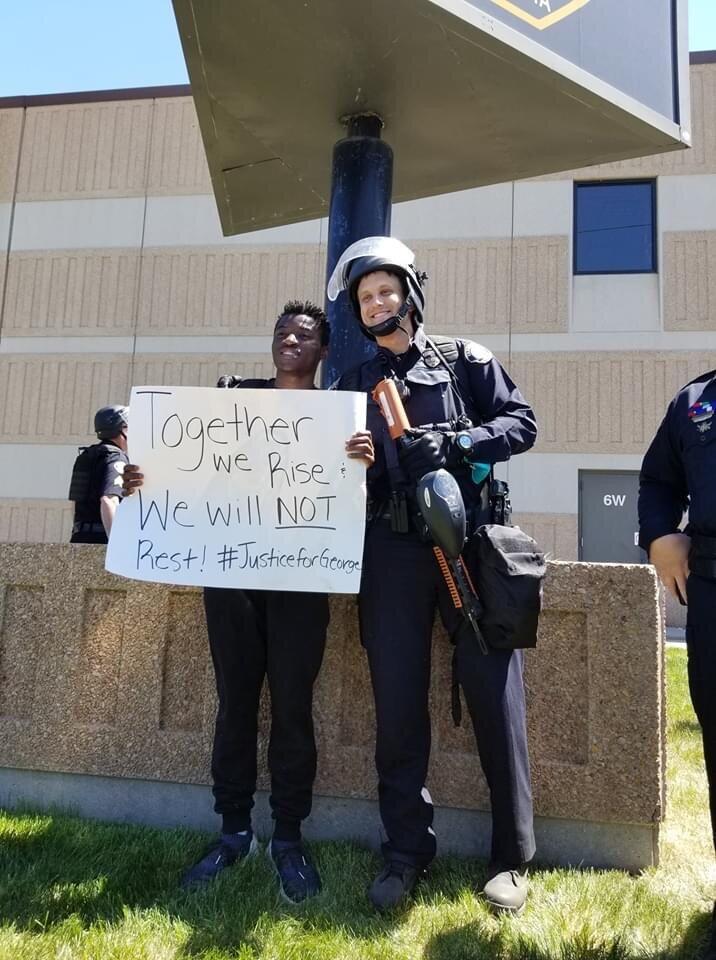 Together
we Rise &
We will NOT
Rest! #JusticeforGeorge
6W